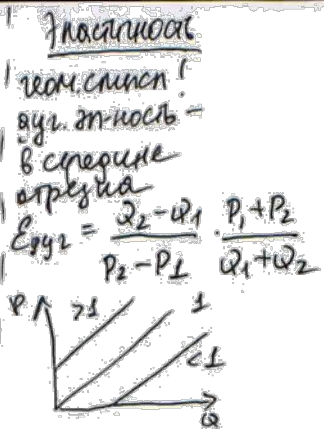 Эластичность
геом. смысл!
дуг. эл-ность –
в средине
отрезка
Eдуг = (Q2 – Q1)/(P2 – P1) · (P1 + P2)/(Q1 + Q2)
P >1 1
<1
Q